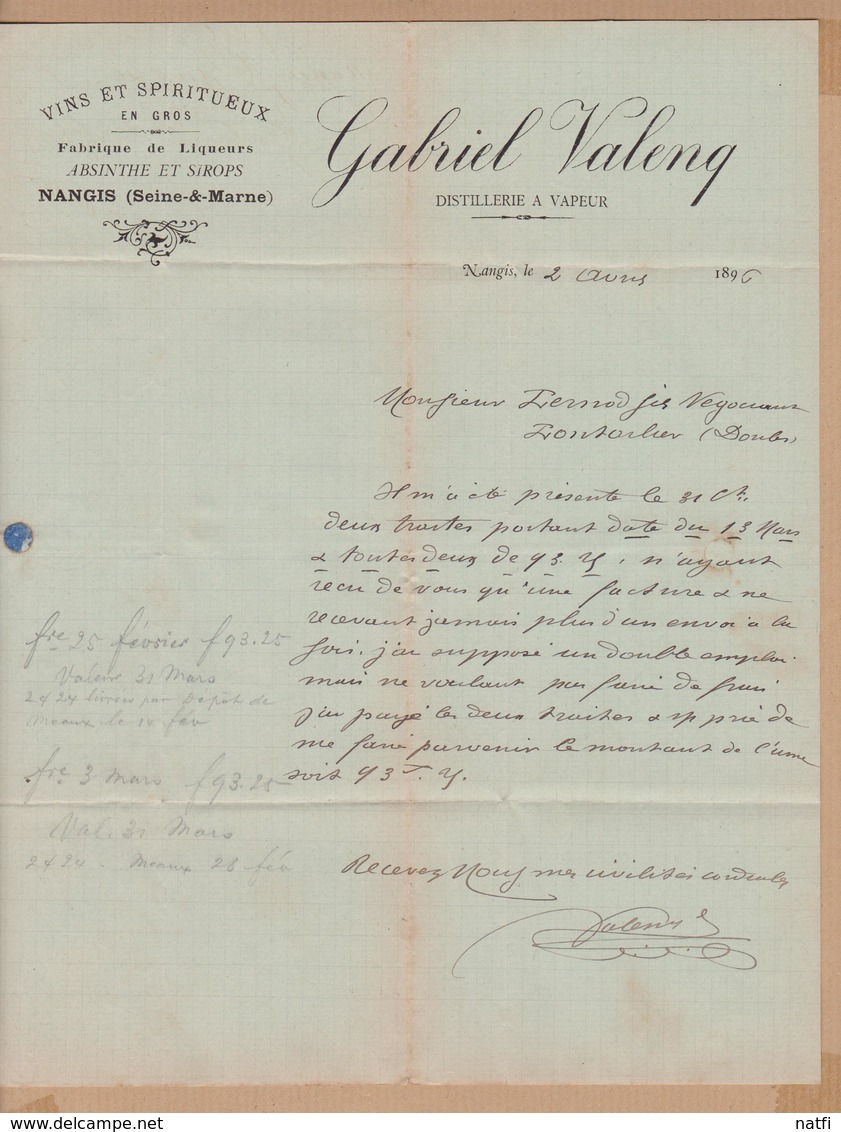 VINS ET SPIRITUEUX
EN GROS
Fabrique de Liqueurs
ABSINTHE ET SIROPS
NANGIS (Seine-&-Marne)
Gabriel Valenq
DISTILLERIE A VAPEUR
Nangis, le 2 Avril 1896
Monsieur Pernod fils Negociant
Pontarlier (Doubs)
Il m'a été présenté le 31 Ct.
deux traites portant date du 13 Mars
& toutes deux de 93.25, n'ayant
recu de vous qu'une facture & ne
recevant jamais plus d'un envoi à la
fois, j'ai supposé un double emploi
mais ne voulant pas faire de frais
j'ai payé les deux traites & vs prie de
me faire parvenir le montant de l'une
soit 93F.25.
Recevez Mons mes civilités cordiales
Valenq
fre 25 février f 93.25
Valeur 31 Mars
24 24 livrées par Dépôt de
Meaux le 14 fév
fre 3 mars f 93.25
Val. 31 Mars
24 24 - Meaux 28 fév
natfi